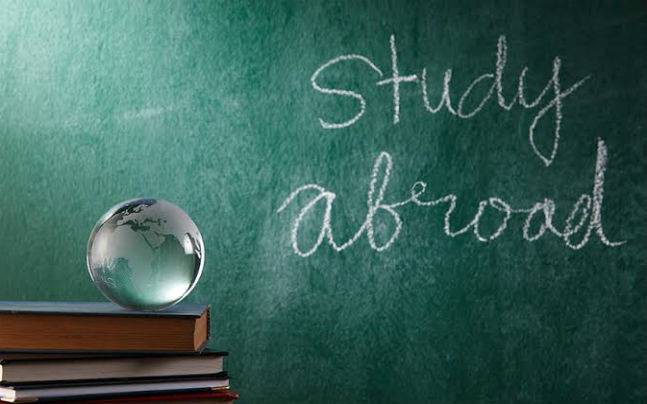 study
abroad